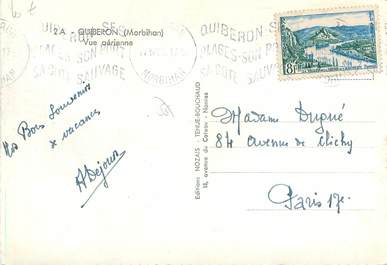 2A - QUIBERON (Morbihan)
Vue aérienne
QUIBERON-SES
PLAGES-SON PORT
SA CÔTE SAUVAGE
MORBIHAN
QUIBERON-SES
PLAGES-SON PO
SA CÔTE SAUVAGE
8F
Nos Bons Souvenirs
& vacances
Editions NOZAIS - TEHUE-BOUCHAUD
18, avenue du Calvaire - Nantes
Madame Dugué
84 Avenue de Clichy
Paris 17e.